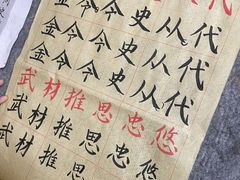 代
金今今史从代
金今今史从代
武材推思忠悠
武材推思忠悠
武材推思忠